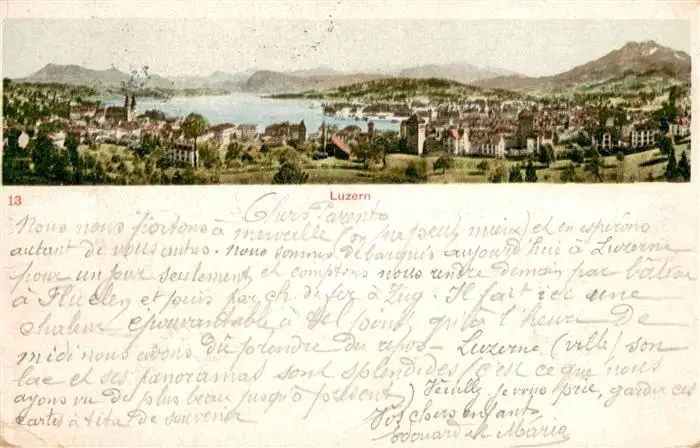 13
Luzern
Chers Parents
Nous nous portons à merveille (on ne peut mieux) et en espérons
autant de vous autres. Nous sommes débarqués aujourd'hui à Luzerne
pour un jour seulement et comptons nous rendre demain par bâteau
à Fluelen et puis par ch. de fer à Zug. Il fait ici une
chaleur épouvantable à tel point qu'à l'heure de
midi nous avons dû prendre du repos - Luzerne (ville) son
lac et ses panoramas sont splendides (c'est ce que nous
ayons vu de plus beau jusqu'à présent) Veuillez je vous prie, garder ces
cartes à titre de souvenir
Vos chers enfants
Edouard et Maria